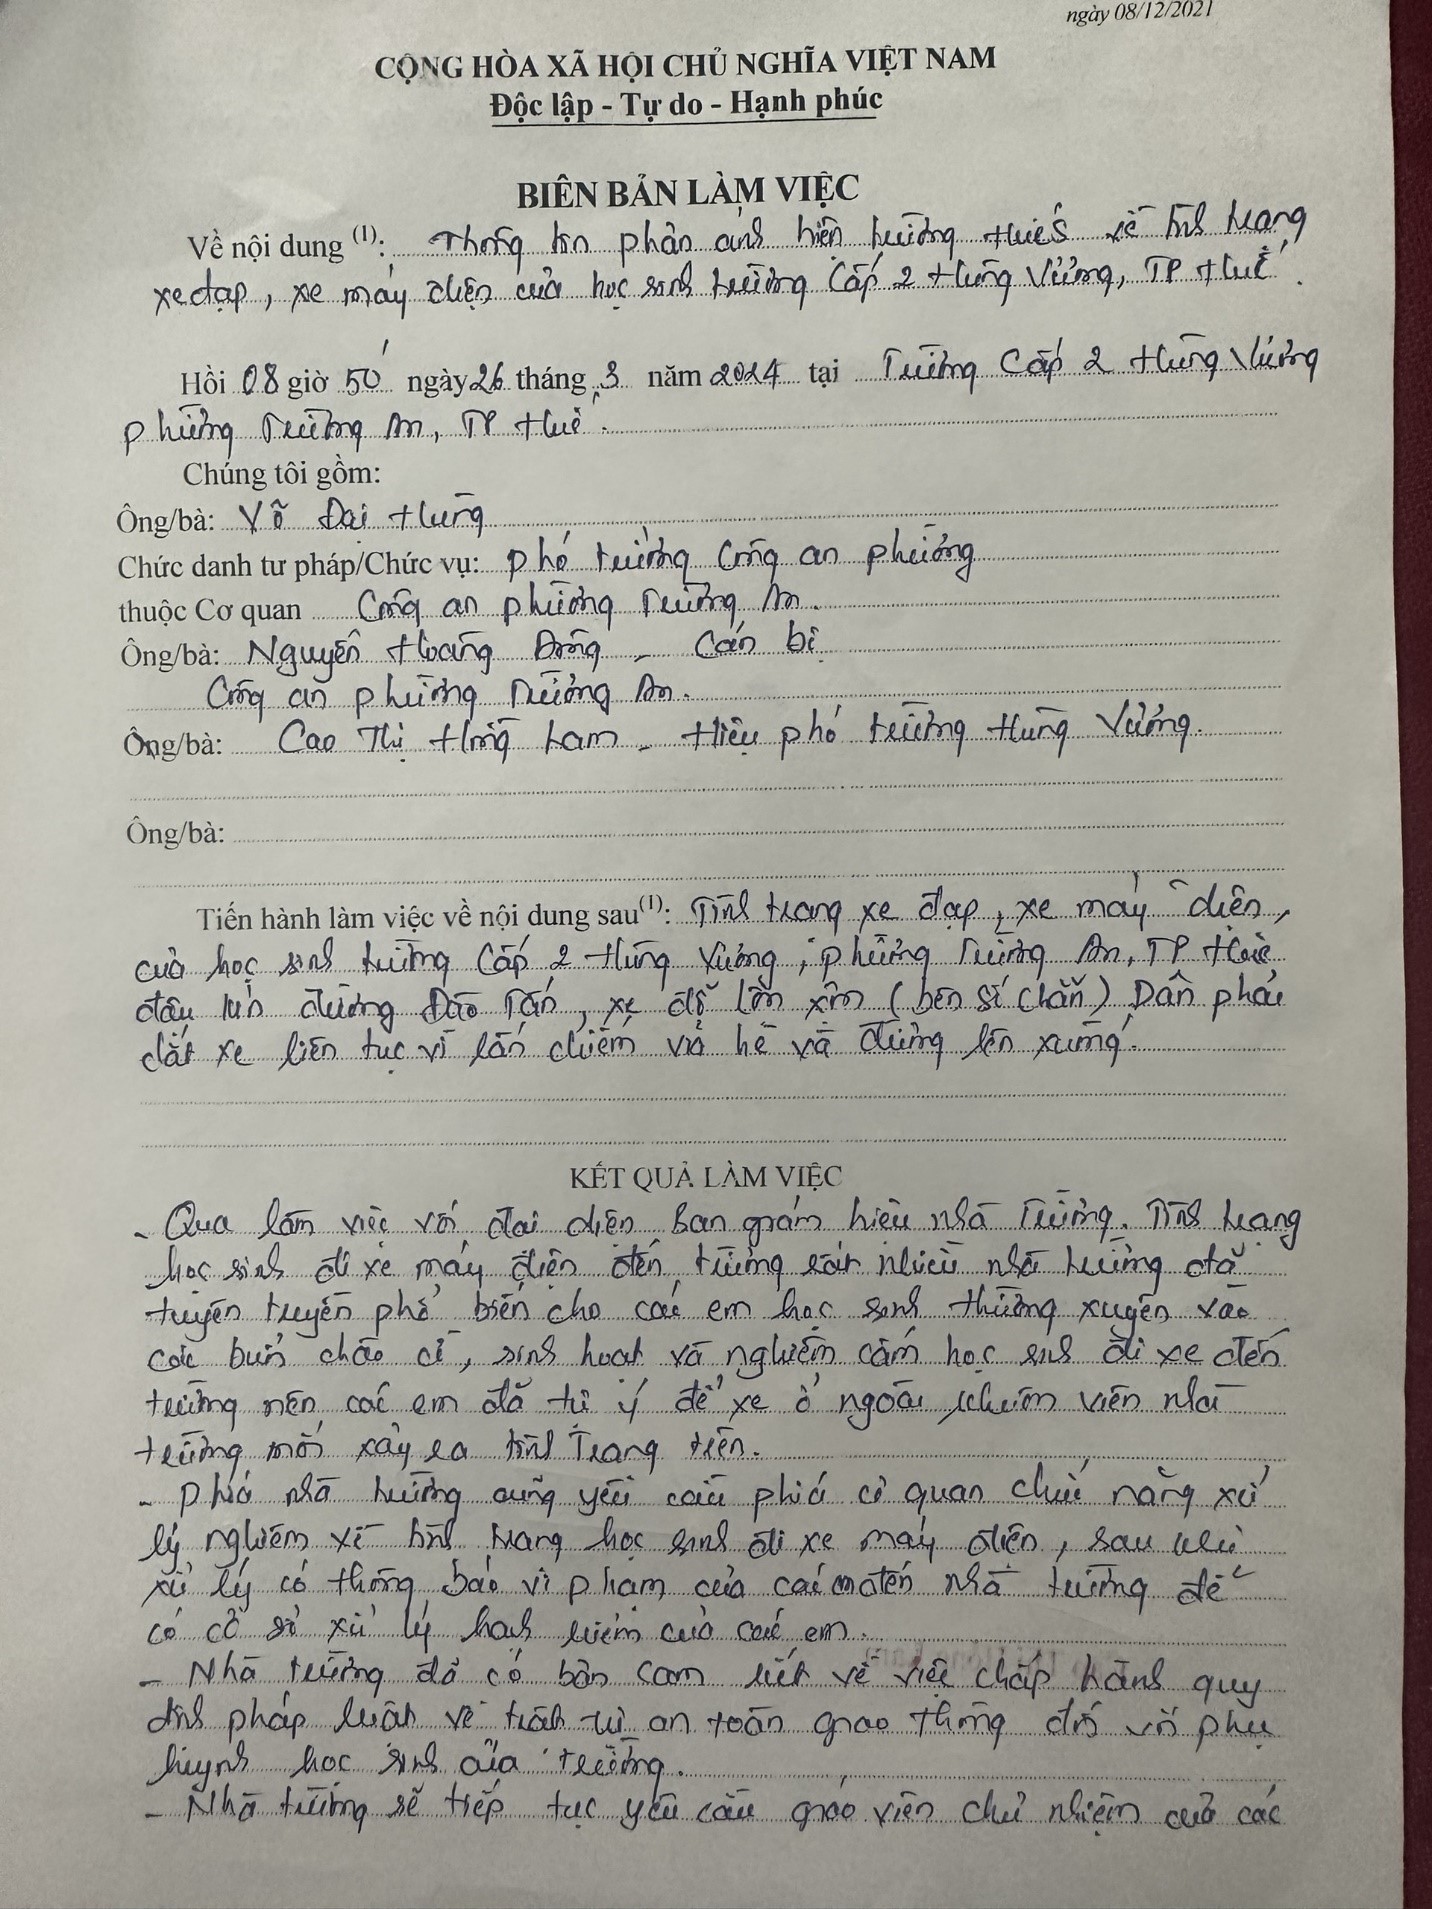 ngày 08/12/2021
CỘNG HÒA XÃ HỘI CHỦ NGHĨA VIỆT NAM
Độc lập - Tự do - Hạnh phúc
BIÊN BẢN LÀM VIỆC
Về nội dung (1): Thông tin phản ánh hiện trường Huế về tình trạng
xe đạp, xe máy điện của học sinh trường Cấp 2 Hùng Vương, TP Huế.
Hồi 08 giờ 50 ngày 26 tháng 3 năm 2024 tại Trường Cấp 2 Hùng Vương
phường Trường An, TP Huế.
Chúng tôi gồm:
Ông/bà: Võ Đại Hùng
Chức danh tư pháp/Chức vụ: Phó trưởng Công an phường
thuộc Cơ quan Công an phường Trường An.
Ông/bà: Nguyễn Hoàng Đông - Cán bộ
Công an phường Trường An.
Ông/bà: Cao Thị Hồng Lam - Hiệu phó trường Hùng Vương.
Ông/bà:
Tiến hành làm việc về nội dung sau(1): Tình trạng xe đạp, xe máy điện,
của học sinh trường Cấp 2 Hùng Vương, phường Trường An, TP Huế
đậu kín đường Đào Tấn, xe đỗ lộn xộn (bên số chẵn) Dân phải
dắt xe liên tục vì lấn chiếm vỉa hè và đường lên xuống.
KẾT QUẢ LÀM VIỆC
- Qua làm việc với đại diện Ban giám hiệu nhà Trường. Tình trạng
học sinh đi xe máy điện đến trường rất nhiều nhà trường đã
tuyên truyền phổ biến cho các em học sinh thường xuyên vào
các buổi chào cờ, sinh hoạt và nghiêm cấm học sinh đi xe đến
trường nên các em đã tự ý để xe ở ngoài khuôn viên nhà
trường mới xảy ra tình Trạng trên.
- Phía nhà trường cũng yêu cầu phía cơ quan chức năng xử
lý nghiêm về tình trạng học sinh đi xe máy điện, sau khi
xử lý có thông báo vi phạm của các em đến nhà trường để
có cơ sở xử lý hạnh kiểm của các em.
- Nhà trường đã có bản cam kết về việc chấp hành quy
định pháp luật về trật tự an toàn giao thông đối với phụ
huynh học sinh của trường.
- Nhà trường sẽ tiếp tục yêu cầu giáo viên chủ nhiệm của các